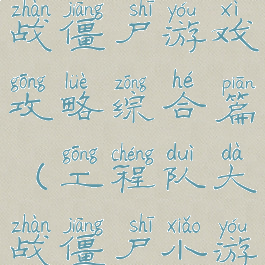 zhàn jiāng shī yóu xì
战僵尸游戏
gōng lüè zōng hé piān
攻略综合篇
gōng chéng duì dà
（工程队大
zhàn jiāng shī xiǎo yóu
战僵尸小游